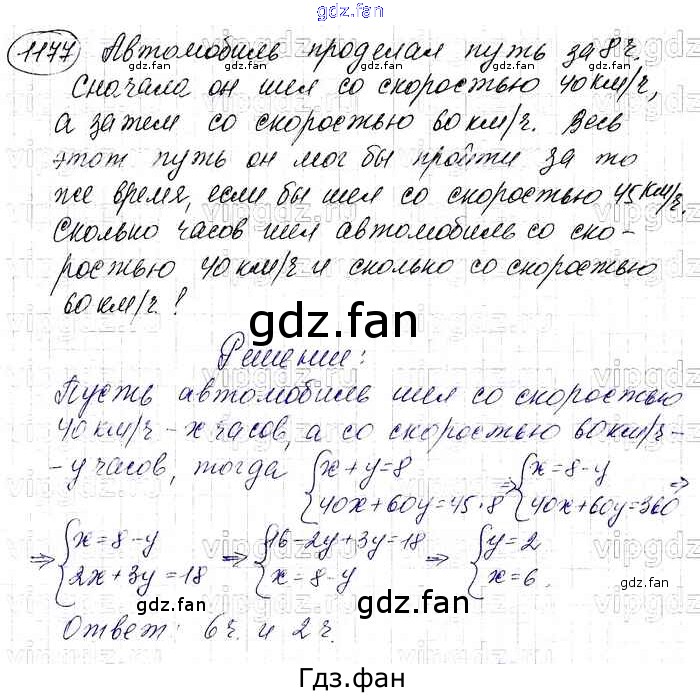 gdz.fan
1177 Автомобиль проделал путь за 8 ч.
Сначала он шел со скоростью 40 км/ч,
а затем со скоростью 60 км/ч. Весь
этот путь он мог бы пройти за то
же время, если бы шел со скоростью 45 км/ч.
Сколько часов шел автомобиль со ско-
ростью 40 км/ч и сколько со скоростью
60 км/ч?
gdz.fan
Решение:
Пусть автомобиль шел со скоростью
40 км/ч - x часов, а со скоростью 60 км/ч -
- y часов, тогда { x + y = 8 ; 40x + 60y = 45 · 8 ⇒ { x = 8 - y ; 40x + 60y = 360 ⇒
⇒ { x = 8 - y ; 2x + 3y = 18 ⇒ { 16 - 2y + 3y = 18 ; x = 8 - y ⇒ { y = 2 ; x = 6.
Ответ: 6 ч. и 2 ч.
gdz.fan
Гдз.фан